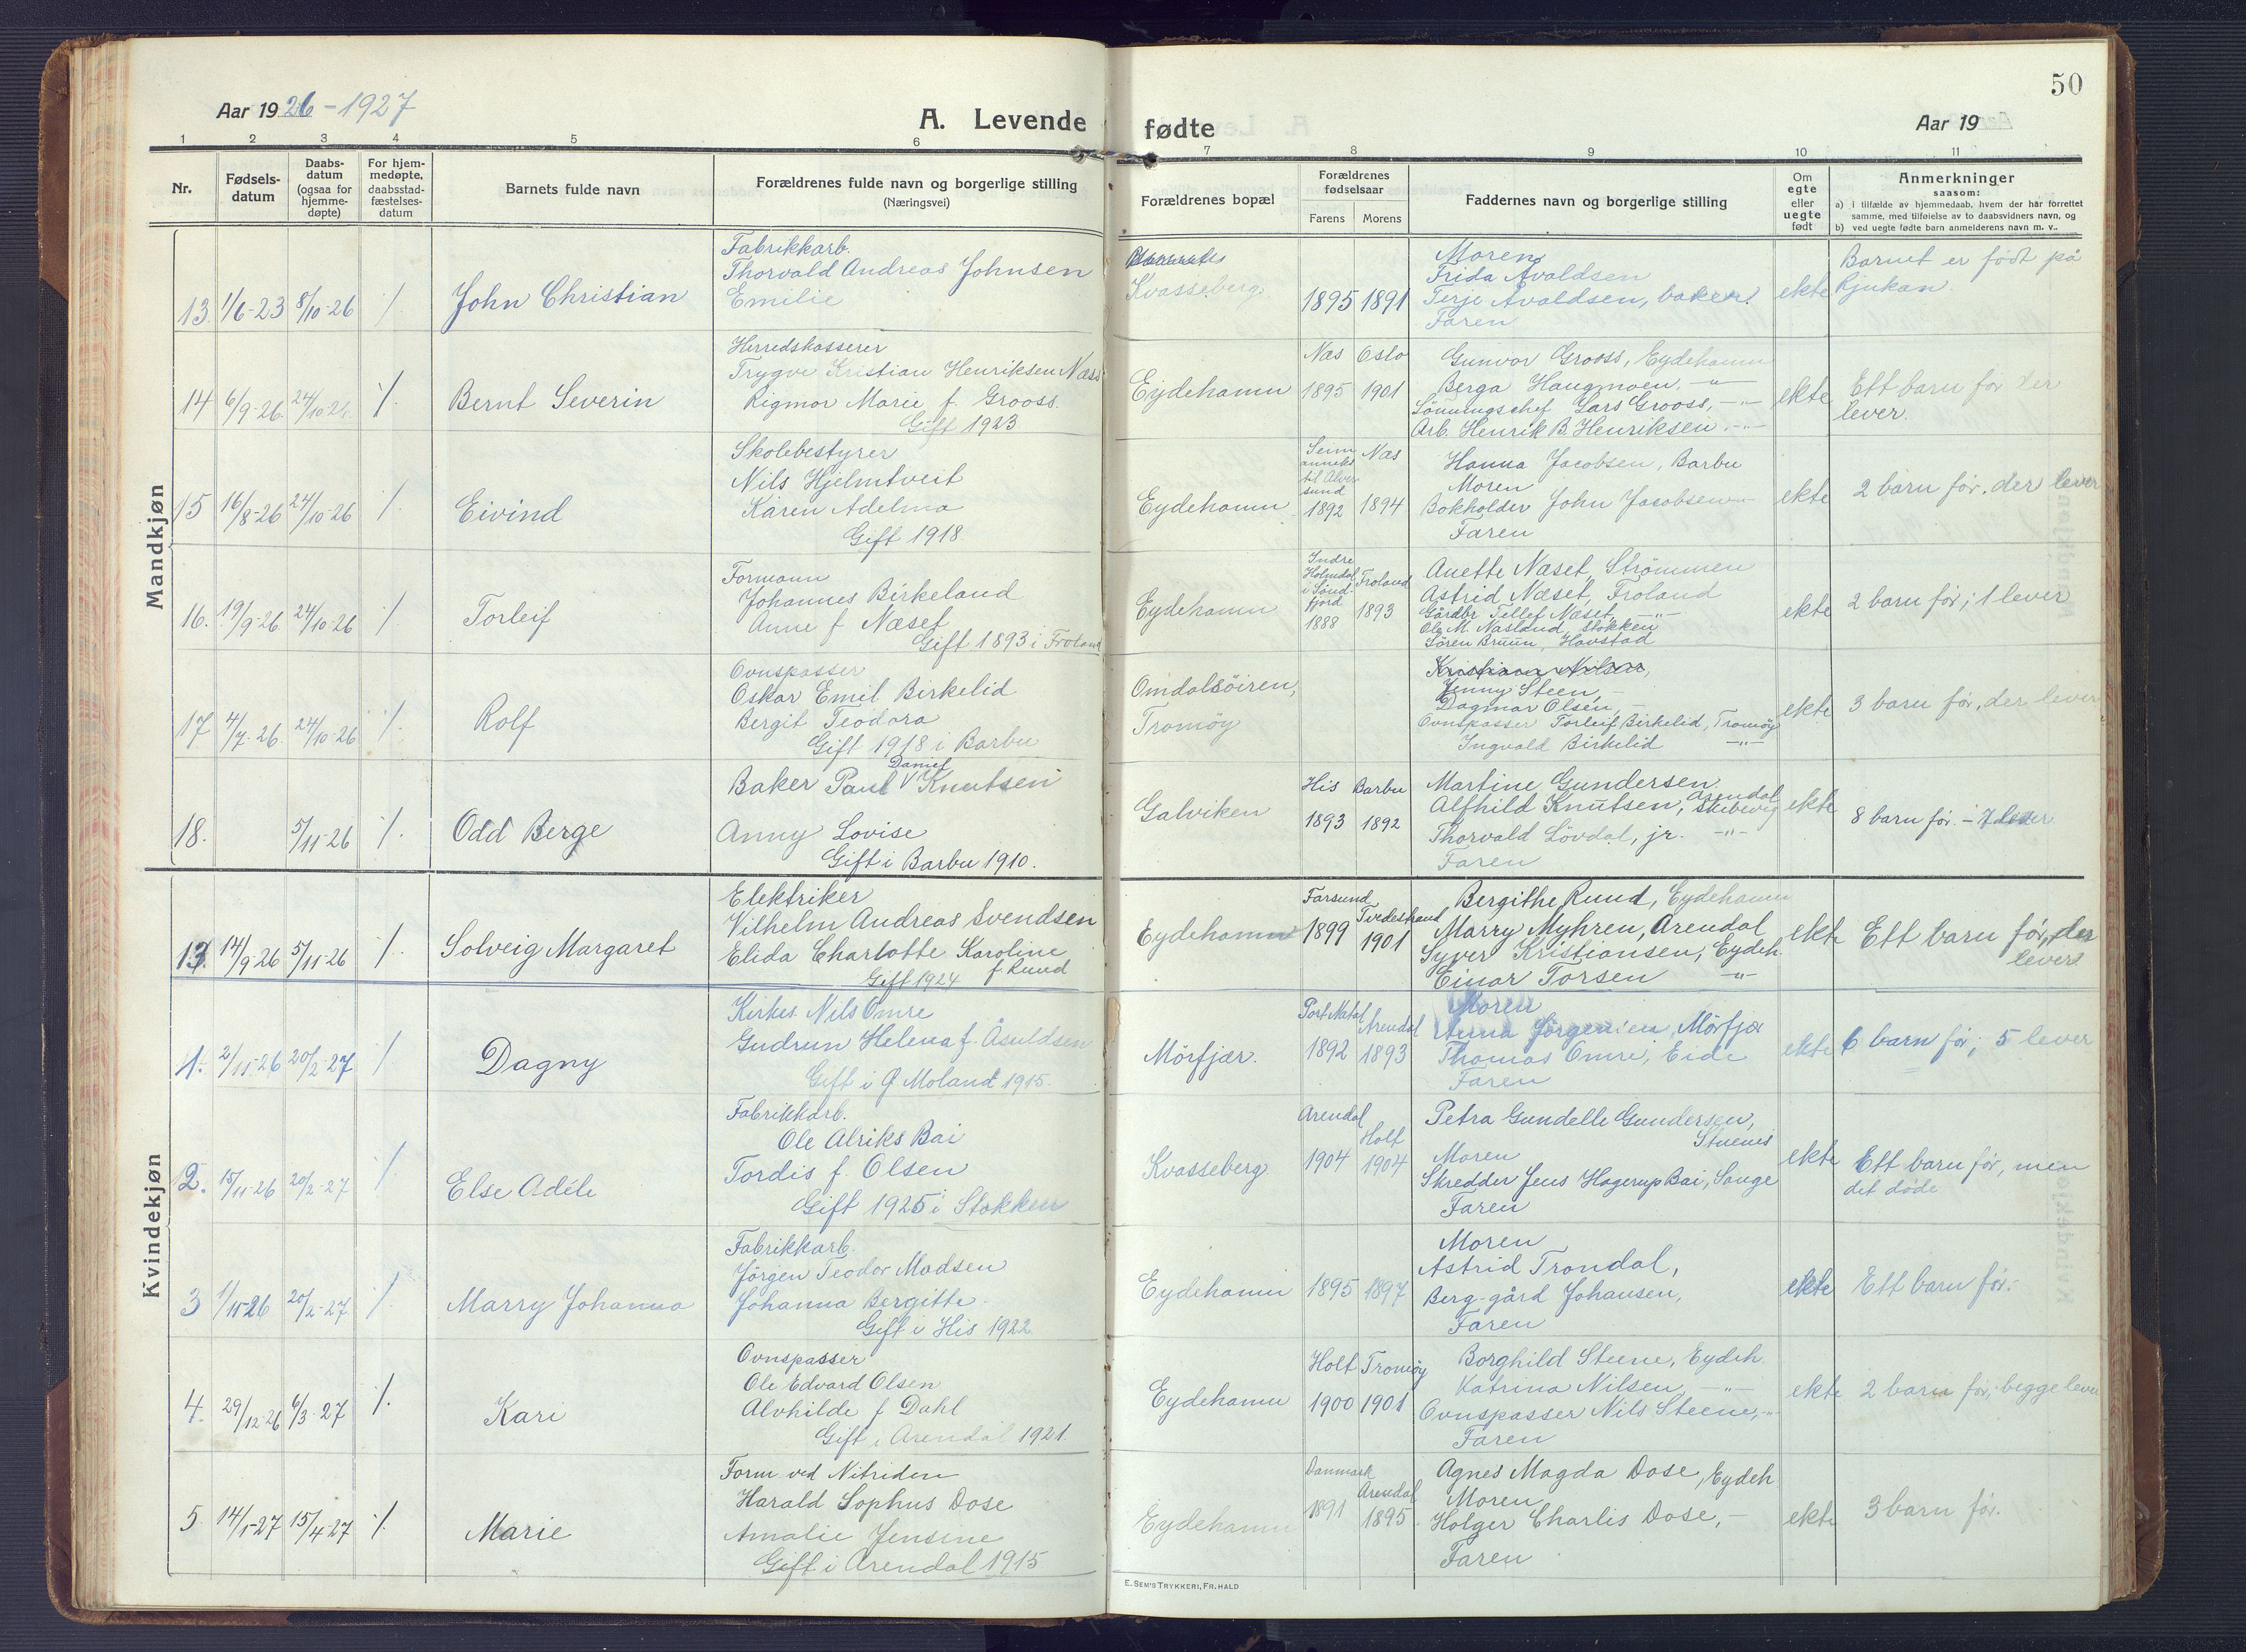 50
Aar 1926-1927
A. Levende fødte
Aar 19
1 2 3 4 5 6 7 8 9 10 11
Nr.
Fødsels-
datum
Daabs-
datum
(ogsaa for
hjemme-
døpte)
For hjem-
medøpte,
daabsstad-
fæstelses-
datum
Barnets fulde navn
Forældrenes fulde navn og borgerlige stilling
(Næringsvei)
Forældrenes bopæl
Forældrenes
fødselsaar
Farens Morens
Faddernes navn og borgerlige stilling
Om
egte
eller
uegte
født
Anmerkninger
saasom:
a) i tilfælde av hjemmedaab, hvem der har forrettet
samme, med tilføielse av to daabsvidners navn, og
b) ved uegte fødte barn anmelderens navn m. v..
Mandkjøn
13. 1/6-23 8/10-26 /. John Christian
Fabrikkarb.
Thorvald Andreas Johnsen
Emilie
Kvasseberg
1895 1891
Moren
Frida Avaldsen
Terje Avaldsen, baker
Faren
ekte
Barnet er født på
Rjukan.
14 6/9-26. 24/10-26. /. Bernt Severin
Herredskasserer
Trygve Kristian Henriksen Næss
Rigmor Marie f. Grooss.
Gift 1923
Eydehamn
Næs Oslo
1895 1901
Gunvor Grooss, Eydehamn
Berga Haugmoen, -"-
Lønningschef Lars Grooss, -"-
Arb. Henrik B. Henriksen. -"-
ekte
Ett barn før der
lever.
15 16/8-26 24/10-26 /. Eivind
Skolebestyrer
Nils Hjelmtveit
Karen Adelma
Gift 1918
Eydehamn
Seim
anneks
til Alver
sund
1892
Næs
1894
Hanna Jacobsen, Barbu
Moren
Bokholder John Jacobsen -"-
Faren
ekte
2 barn før. der lever
16. 19/9-26 24/10-26 /. Torleif
Formann
Johannes Birkeland
Anne f Næset
Gift 1893 i Froland
Eydehamn
Indre
Holmdal
i Sønd-
fjord
1888
Froland
1893
Anette Næset, Strømmen
Astrid Næset, Froland
Gårdbr Tellef Næset, -"-
Ole M. Næsland, Stokken
Søren Bruun, Havstad
ekte
2 barn før; 1 lever
17 4/7-26. 24/10-26 /. Rolf
Ovnspasser
Oskar Emil Birkelid
Bergit Teodora
Gift 1918 i Barbu
Omdalsøiren,
Tromøy
Kristiane Nilsen,
Jenny Steen, -
Dagmar Olsen, -
Ovnspasser Torleif Birkelid, Tromøy
Ingvald Birkelid -"-
ekte
3 barn før, der lever
18. 5/11-26 /. Odd Berge
Daniel
Baker Paul Knutsen
Anny Lovise
Gift i Barbu 1910.
Galviken
His Barbu
1893 1892
Martine Gundersen.
Alfhild Knutsen, Arendal
Thorvald Løvdal, jr. -"-
Faren
ekte
8 barn før. - 7 lever
Kvindekjøn
13. 14/9-26 5/11-26 /. Solveig Margaret
Elektriker
Vilhelm Andreas Svendsen
Elida Charlotte Karoline
f. Ruud
Gift 1924
Eydehamn
Farsund
1899
Tvedestrand
1901
Bergithe Ruud, Eydehamn
Marry Myhren, Arendal
Syver Kristiansen, Eydeh.
Einar Torsen -"-
ekte
Ett barn før, der
lever
1. 2/11-26 20/2-27 / Dagny
Kirkes. Nils Omre
Gudrun Helena f. Åsuldsen
Gift i Ø Moland 1915.
Mørfjær.
Port Natal
1892
Arendal
1893
Moren
Anna Jørgensen, Mørfjær
Thomas Omre, Eide
Faren
ekte
6 barn før; 5 lever
2. 15/11-26 20/2-27 /. Else Adele
Fabrikkarb.
Ole Alriks Bai
Tordis f. Olsen
Gift 1925 i Stokken
Kvasseberg
Arendal
1904
Holt
1904
Petra Gundelle Gundersen,
Stuenes
Moren
Skredder Jens Hagerup Bai, Songe
Faren
ekte
Ett barn før, men
det døde
3 1/11-26 20/2-27 /. Marry Johanna
Fabrikkarb.
Jørgen Teodor Madsen
Johanna Bergitte
Gift i His 1922
Eydehamn
1895 1897
Moren
Astrid Trondal,
Berg-gård Johansen,
Faren
ekte
Ett barn før.
4. 29/12-26 6/3-27 /. Kari
Ovnspasser
Ole Edvard Olsen
Alvhilde f Dahl
Gift i Arendal 1921.
Eydehamn
Holt Tromøy
1900 1901
Borghild Steene, Eydeh.
Katrina Nilsen -"-
Ovnspasser Nils Steene, -"-
Faren
ekte
2 barn før, begge lever
5. 14/1-27 15/4-27 /. Marie
Form ved Nitriden
Harald Sophus Dose
Amalie Jensine
Gift i Arendal 1915
Eydehamn
Danmark
1891
Arendal
1895
Agnes Magda Dose, Eydeh
Moren
Holger Charlis Dose, -
Faren
ekte
3 barn før.
E. SEM'S TRYKKERI, FR.HALD